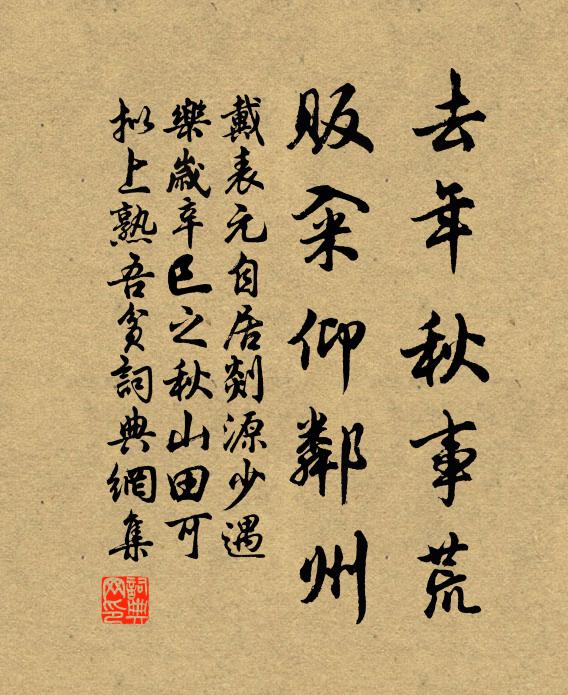 去年秋事荒
販籴仰鄰州
戴表元自居剡源少遇
樂歲辛巳之秋山田可
拟上熟吾貧詞典網集
詞典网印